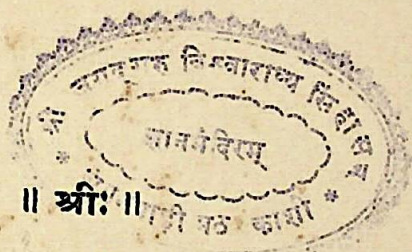 श्री जगद्गुरु विश्वाराध्य सिंहासन
ज्ञानमंदिरम्
मठ काशी
॥ श्रीः ॥